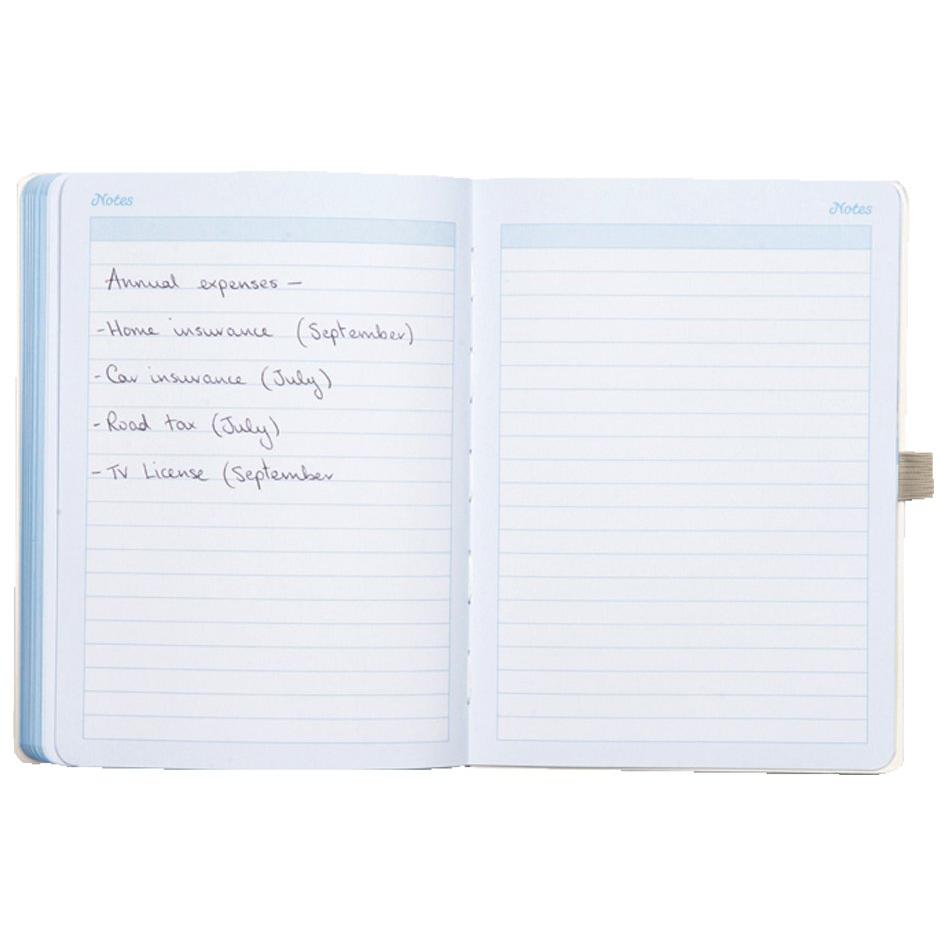 Notes
Annual expenses –
- Home insurance (September)
- Car insurance (July)
- Road tax (July)
- TV License (September
Notes